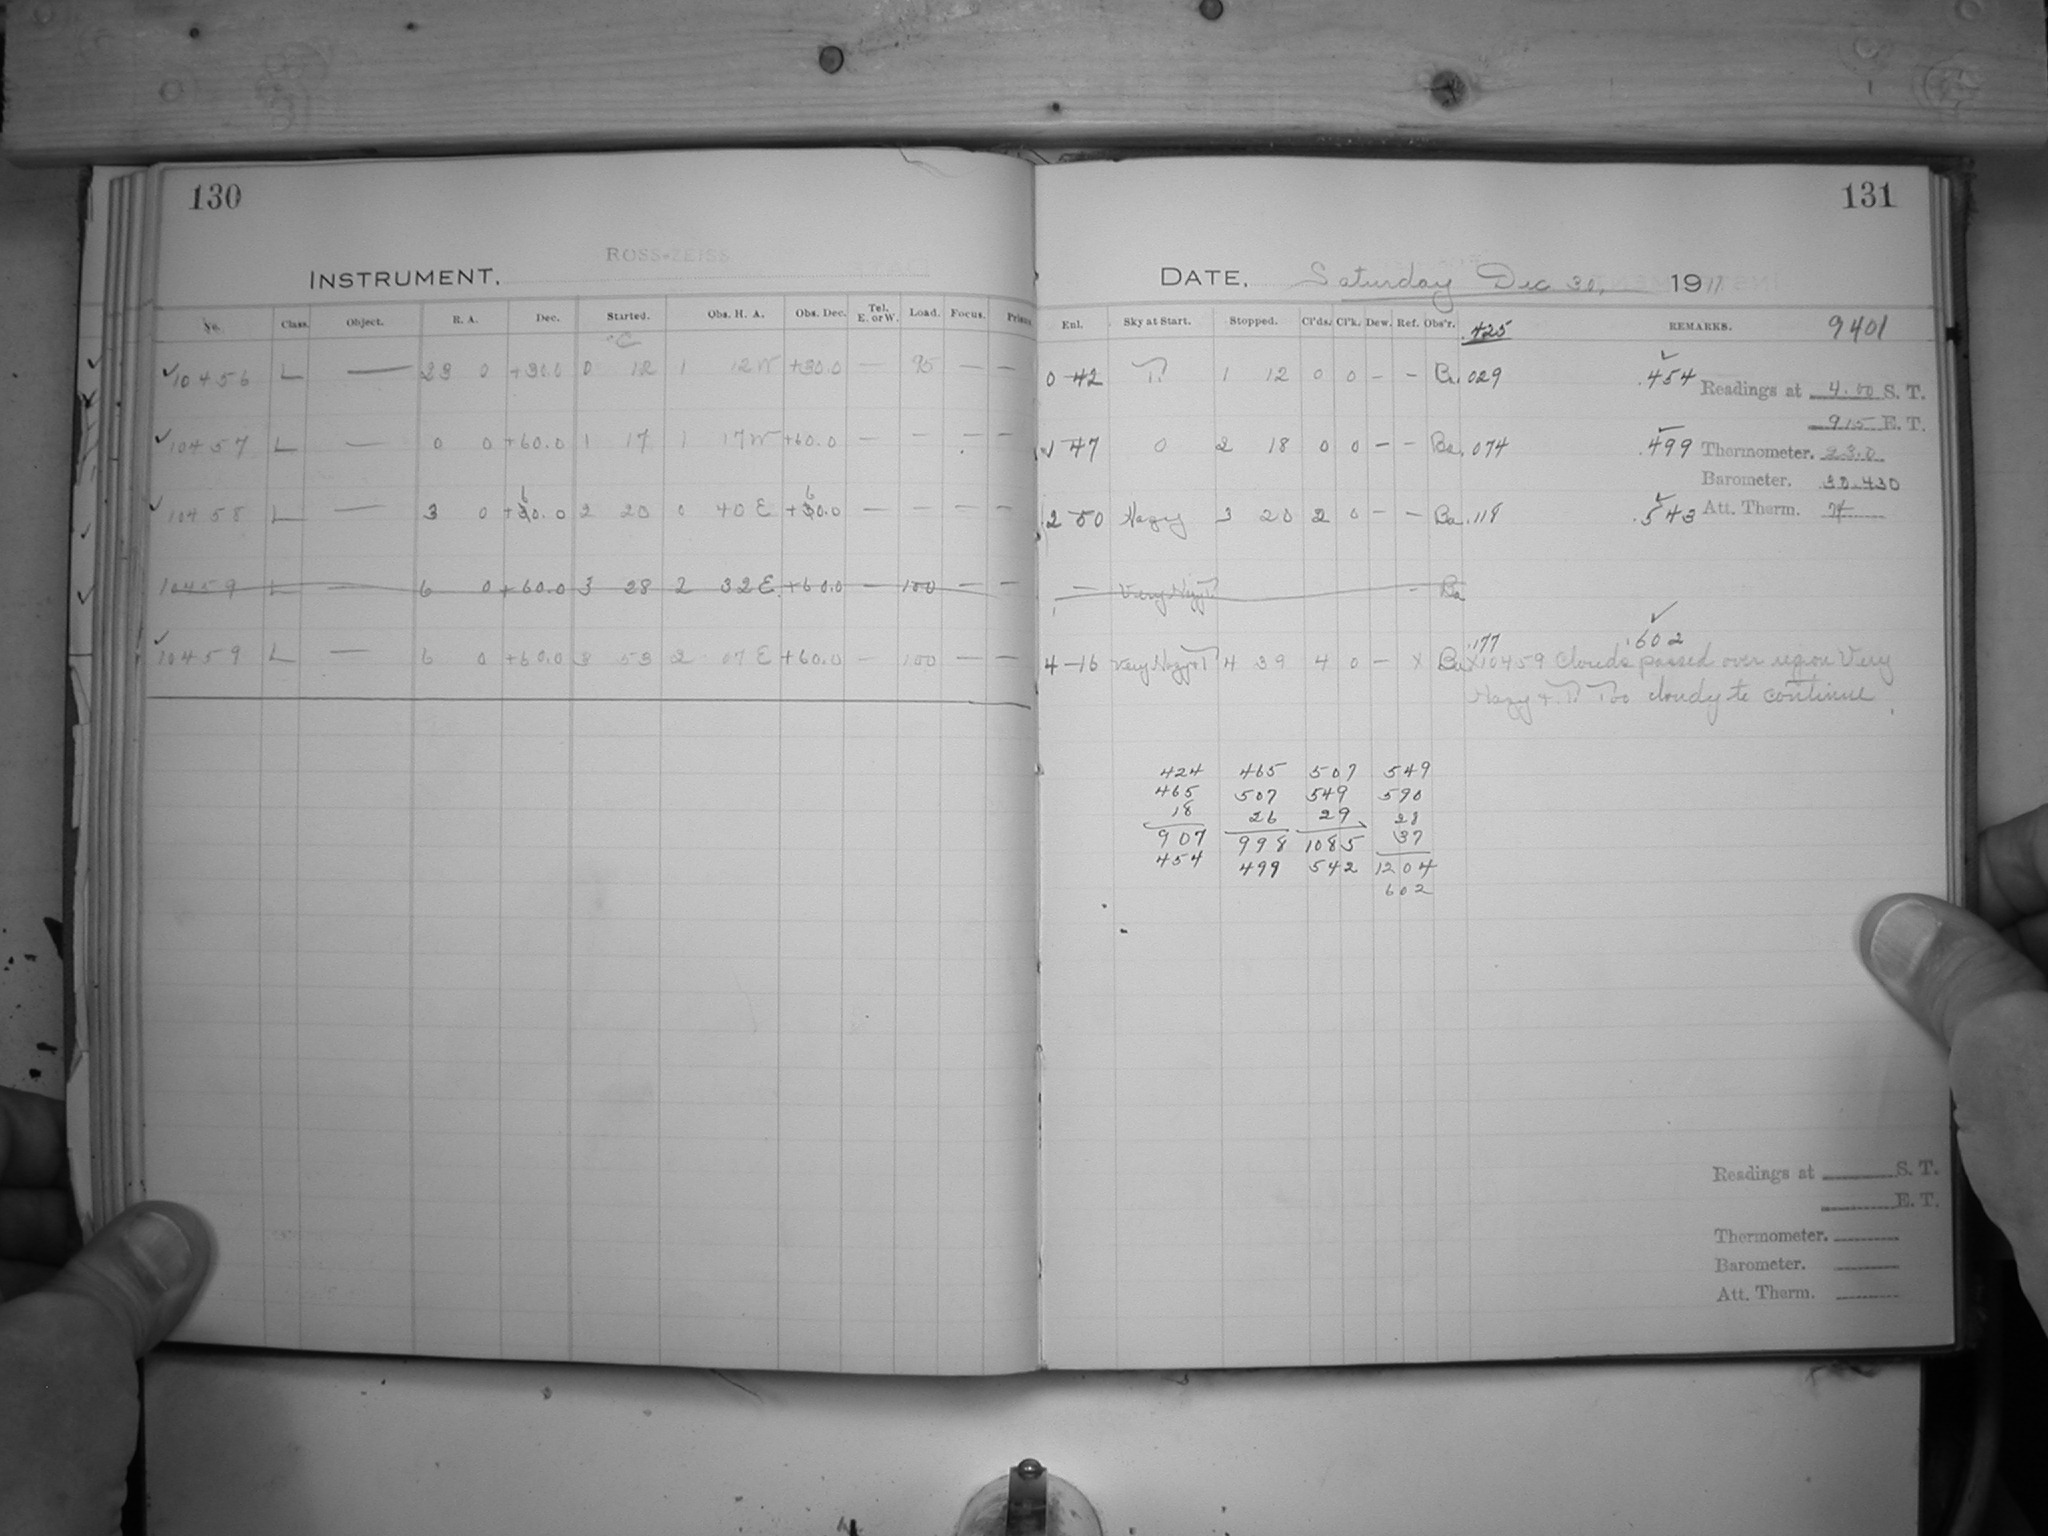 130
ROSS-ZEISS
INSTRUMENT.
No. Class. Object. R. A. Dec. Started. Obs. H. A. Obs. Dec. Tel. E. or W. Load. Focus. Prism.
10456 L — 23 0 +30.0 0 12 1 12 W +30.0 — 95 — —
10457 L — 0 0 +60.0 1 17 1 17 W +60.0 — — — —
10458 L — 3 0 +60.0 2 20 0 40 E +60.0 — — — —
10459 L — 6 0 +60.0 3 28 2 32 E +60.0 — 100 — —
10459 L — 6 0 +60.0 3 53 2 07 E +60.0 — 100 — —
131
DATE. Saturday Dec 30, 1917
Enl. Sky at Start. Stopped. Cl'ds. Cl'k. Dew. Ref. Obs'r. .425 REMARKS. 9401
0-42 T. 1 12 0 0 - - Ba. .029 .454
Readings at 4.00 S. T.
915 E. T.
1-47 0 2 18 0 0 - - Ba. .074 .499
Thermometer. 23.0
Barometer. 30.430
2-50 Hazy 3 20 2 0 - - Ba .118 .543
Att. Therm. 74
— Very Hazy T - Ba
.177 .602
4-16 Very Hazy+T 4 39 4 0 - X Ba X10459 Clouds passed over region Very
Hazy + T. Too cloudy to continue
424 465 507 549
465 507 549 590
18 26 29 28
907 998 1085 37
454 499 542 1204
602
Readings at S. T.
E. T.
Thermometer.
Barometer.
Att. Therm.